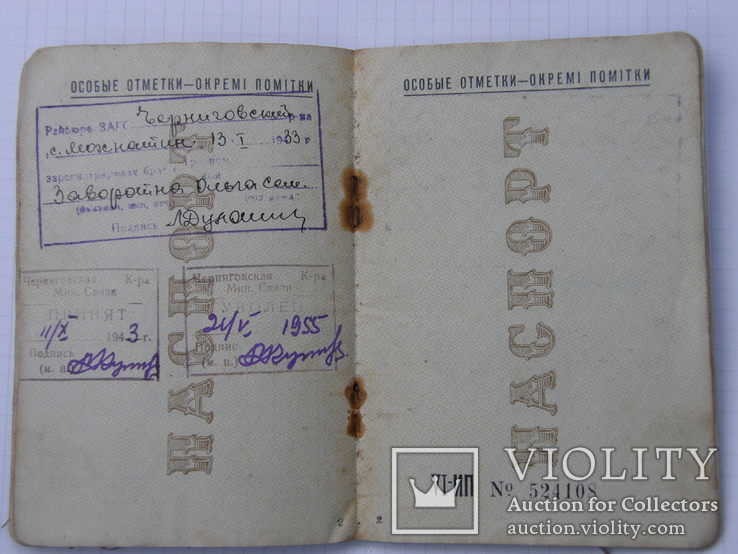 ОСОБЫЕ ОТМЕТКИ—ОКРЕМІ ПОМІТКИ
Райбюро ЗАГС Черниговский р-на
с. Мохнатин 13 I 1933 г
зарегистрирован брак с гр-ном
Заворотна Ольга Сем.
Подпись
Черниговская К-ра
Мин. Связи
ПРИНЯТ
11/X 1943 г.
Подпись
(м. п.)
Черниговская К-ра
Мин. Связи
УВОЛЕН
21/V 1955
Подпис
(м. п.)
ПАСПОРТ
2
ОСОБЫЕ ОТМЕТКИ—ОКРЕМІ ПОМІТКИ
ПАСПОРТ
№ 524108
2
VIOLITY
Auction for Collectors
auction.violity.com